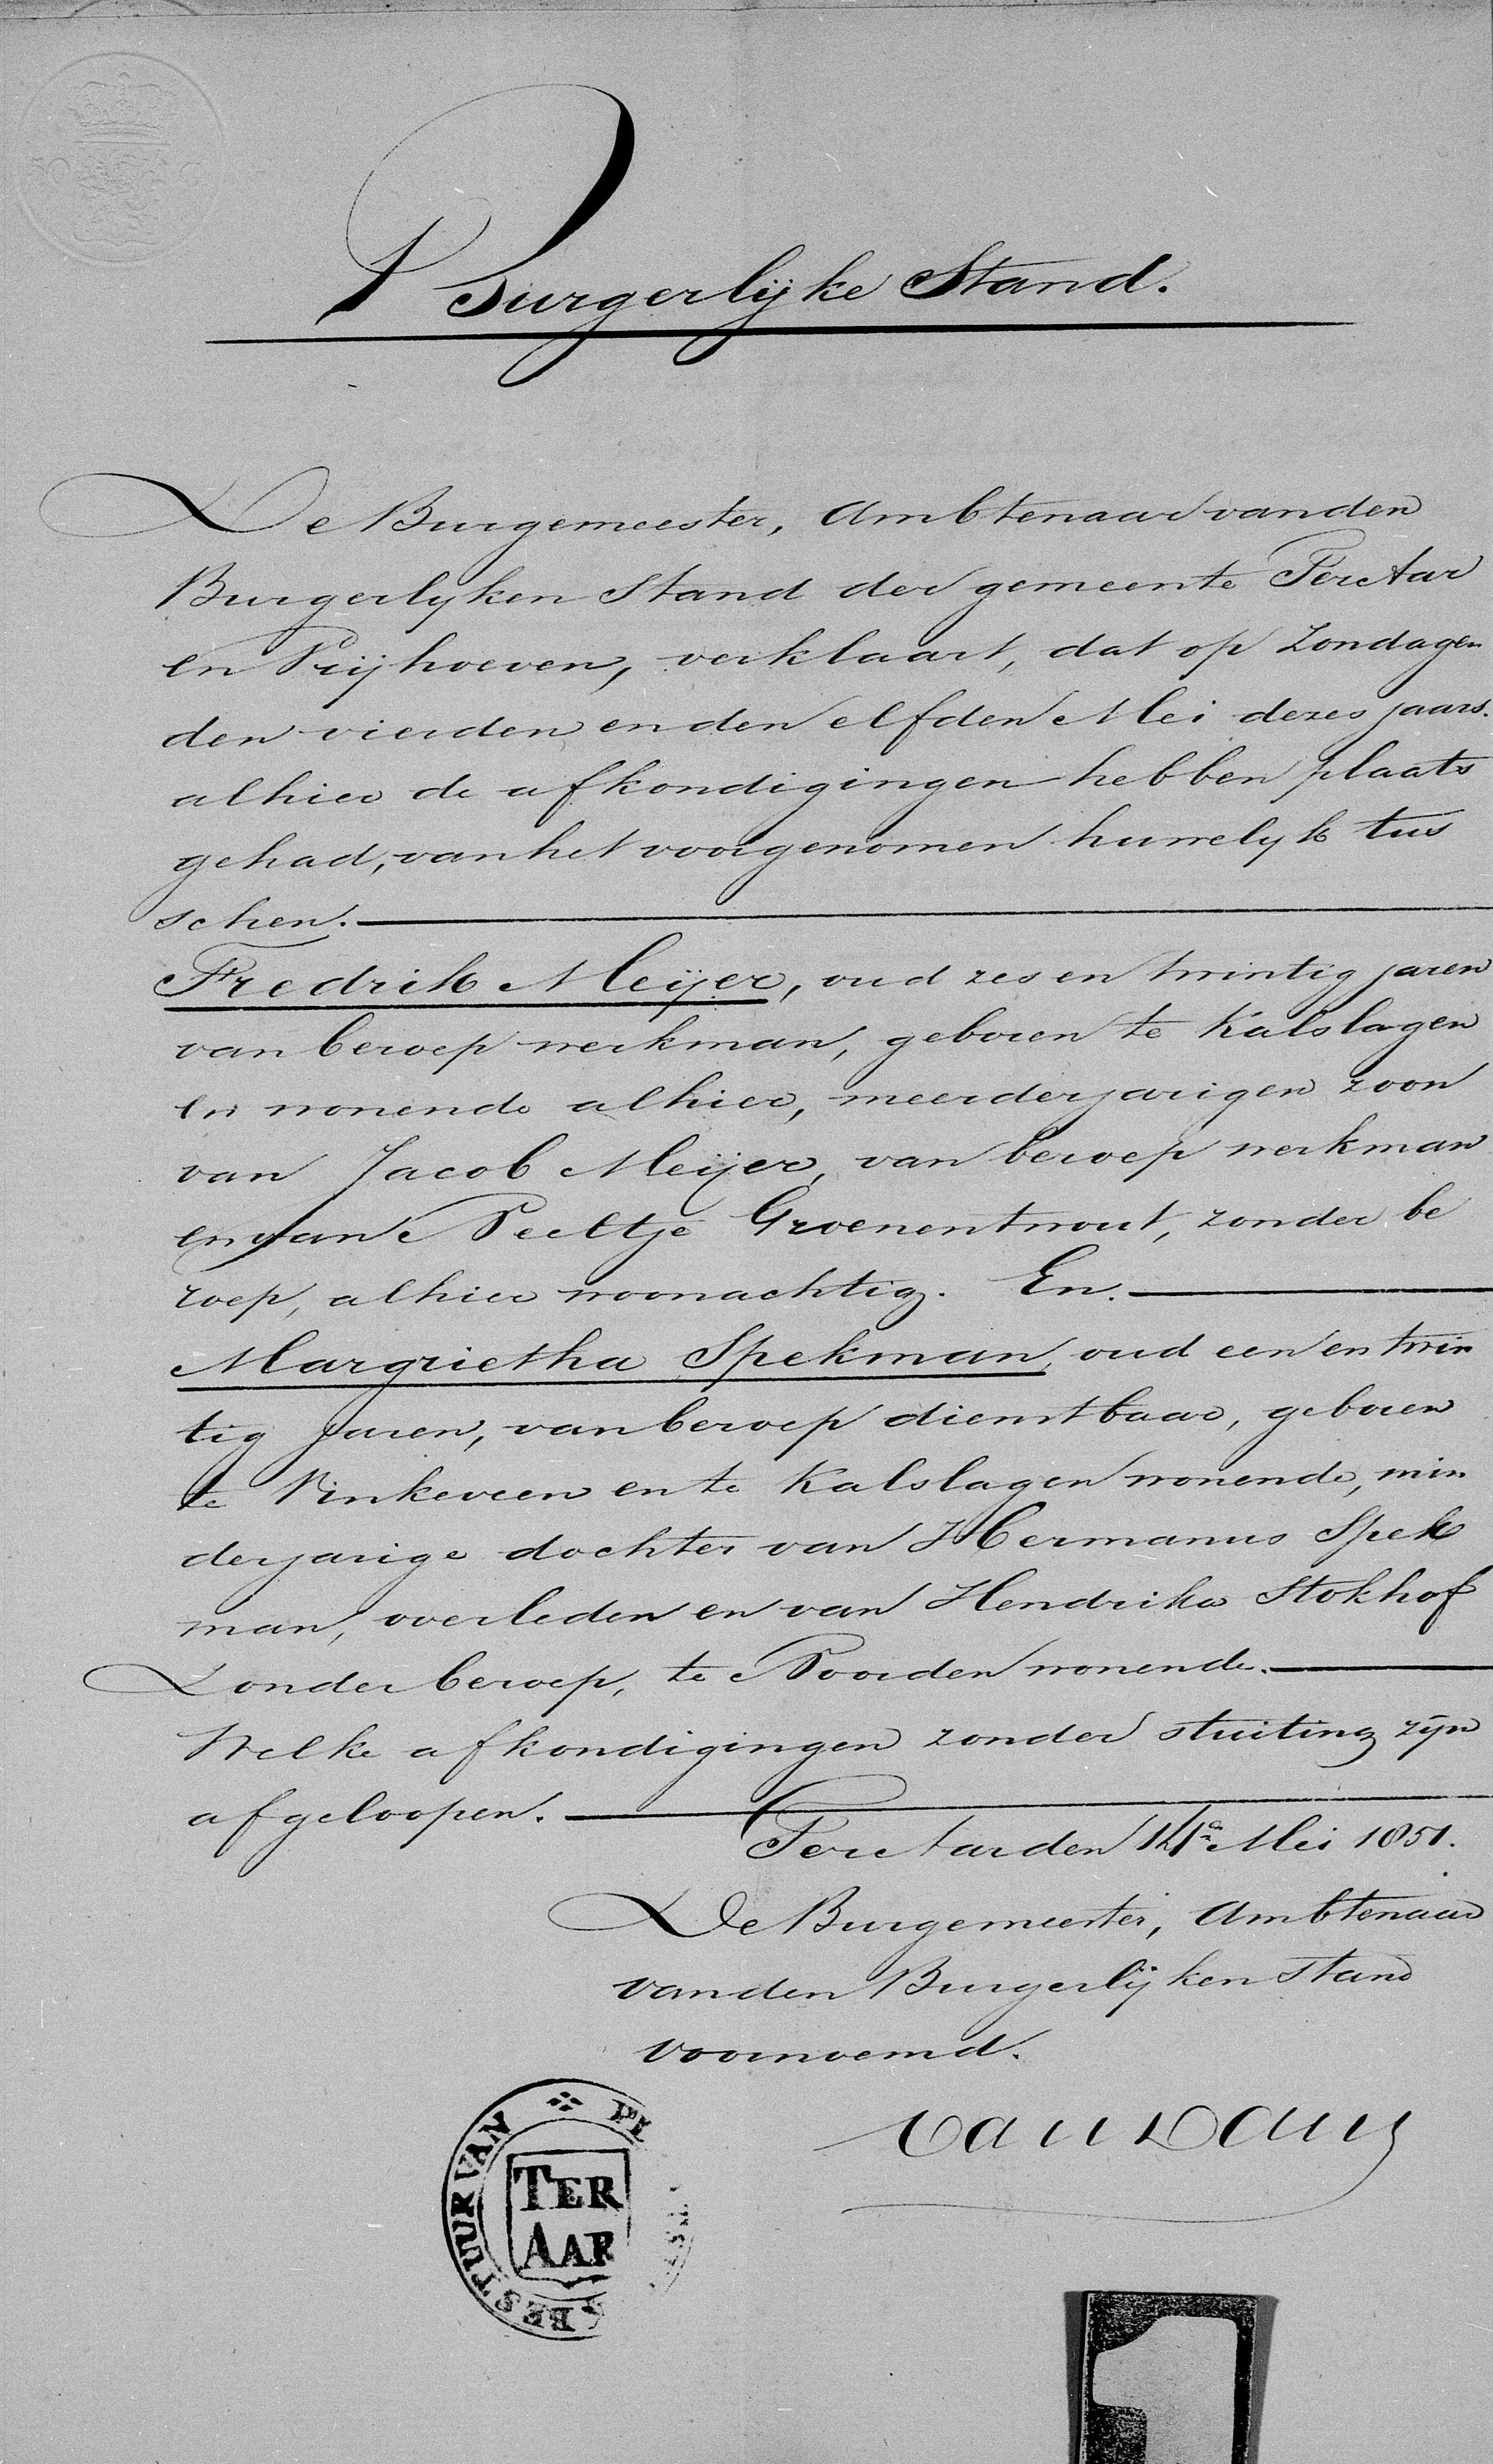 Burgerlijke Stand.
De Burgemeester, Ambtenaar van den
Burgerlyken Stand der gemeente Ter Aar
en Vrijhoeven, verklaart, dat op Zondagen
den vierden en den elfden Mei dezes jaars.
alhier de afkondigingen hebben plaats
gehad, van het voorgenomen huwelyk tus
schen.
Fredrik Meijer, oud zes en twintig jaren
van beroep werkman, geboren te Kalslagen
en wonende alhier, meerderjarigen zoon
van Jacob Meijer, van beroep werkman
en van Neeltje Groenentwout, zonder be
roep, alhier woonachtig. En.
Margrietha Spekman, oud een en twin
tig jaren, van beroep dienstbaar, geboren
te Vinkeveen en te Kalslagen wonende, min
derjarige dochter van Hermanus Spek
man, overleden en van Hendrika Stokhof
Zonder beroep, te Noorden wonende.
Welke afkondigingen zonder stuiting zyn
afgeloopen.
Ter Aar den 14n Mei 1851.
De Burgemeester, Ambtenaar
van den Burgerlijken Stand
voornoemd.
BESTUUR VAN
TER
AAR